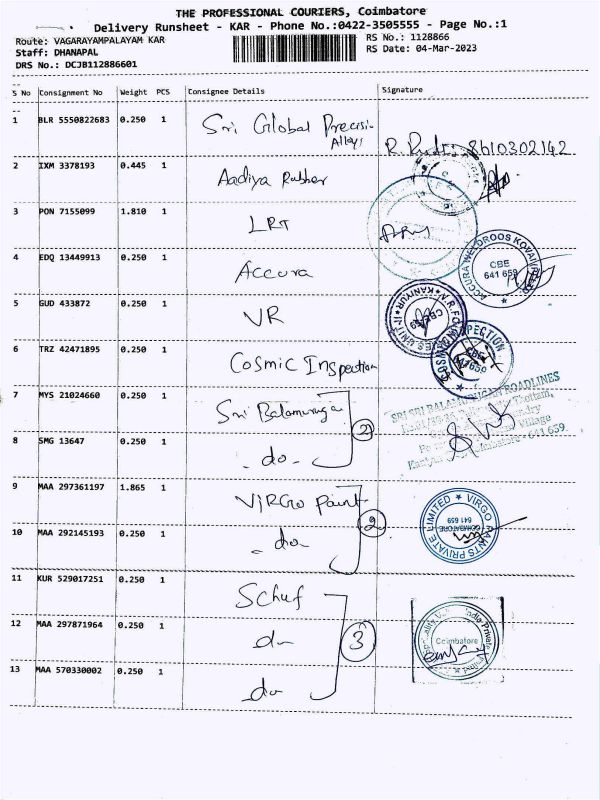 THE PROFESSIONAL COURIERS, Coimbatore
Delivery Runsheet - KAR - Phone No.:0422-3505555 - Page No.:1
Route: VAGARAYAMPALAYAM KAR
RS No.: 1128866
Staff: DHANAPAL
RS Date: 04-Mar-2023
DRS No.: DCJB112886601
S No Consignment No Weight PCS Consignee Details Signature
1 BLR 5550822683 0.250 1 Sri Global Precisi
Alloys
8610302142
2 IXM 3378193 0.445 1 Aadiya Rubber
3 PON 7155099 1.810 1 LRT
4 EDQ 13449913 0.250 1 Accura
CBE
641 659
5 GUD 433872 0.250 1 VR
6 TRZ 42471895 0.250 1 Cosmic Inspection
7 MYS 21024660 0.250 1 Sri Balamuruga
2
8 SMG 13647 0.250 1 - do -
641 659.
9 MAA 297361197 1.865 1 Virgo Paint
VIRGO PAINTS PRIVATE LIMITED
COIMBATORE
641 659
2
10 MAA 292145193 0.250 1 - do
11 KUR 529017251 0.250 1 Schuf
12 MAA 297871964 0.250 1 do
3
Coimbatore
13 MAA 570330002 0.250 1 do